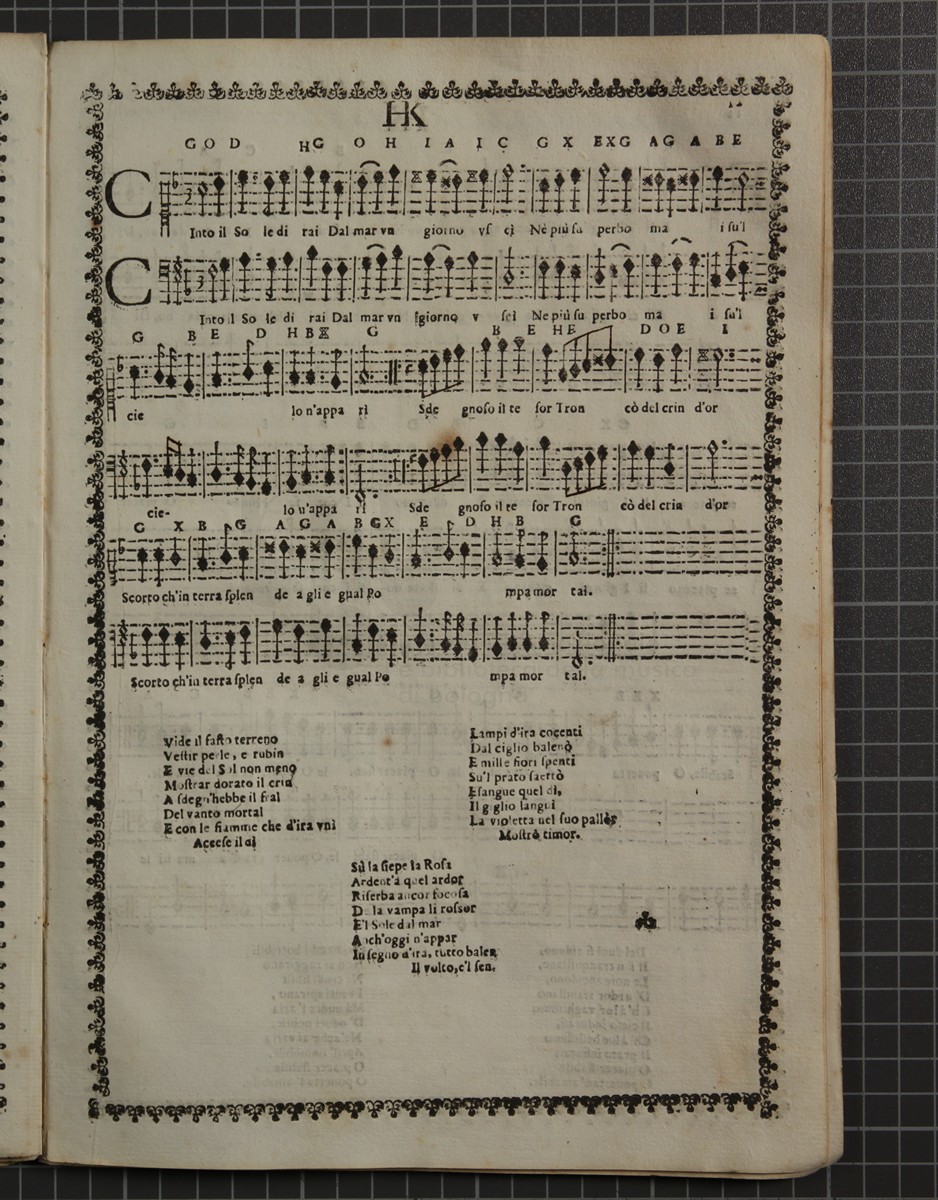 HK
G O D HG O H I A I C G X EXG AG A B E
CInto il So le di rai Dal mar vn giorno vſ cì Nè più ſu perbo ma i ſu'l
CInto il So le di rai Dal mar vn giorno v ſcì Ne più ſu perbo ma i ſu'l
G B E D H B X G B E HE D O E I
cie lo n'appa rì Sde gnoſo il te ſor Tron cò del crin d'or
cie- lo n'appa rì Sde gnoſo il te ſor Tron cò del crin d'or
G X B G A G A B G X E D H B G
Scorto ch'in terra ſplen de a gli e gual Po mpa mor tal.
Scorto ch'in terra ſplen de a gli e gual Po mpa mor tal.
Vide il faſto terreno
Veſtir perle, e rubin
E vie del Sol non meno
Moſtrar dorato il crin
A ſdegn'hebbe il fral
Del vanto mortal
E con le fiamme che d'ira vnì
Acceſe il dì
Lampi d'ira cocenti
Dal ciglio balenò
E mille fiori ſpenti
Su'l prato ſaettò
Eſangue quel dì,
Il giglio languì
La violetta nel ſuo pallor
Moſtrò timor.
Sù la ſiepe la Roſa
Ardent'à quel ardor
Riſerba ancor focoſa
De la vampa li roſſor
E'l Sole dal mar
Anch'oggi n'appar
In ſegno d'ira, tutto balen
Il volto, e'l ſen.